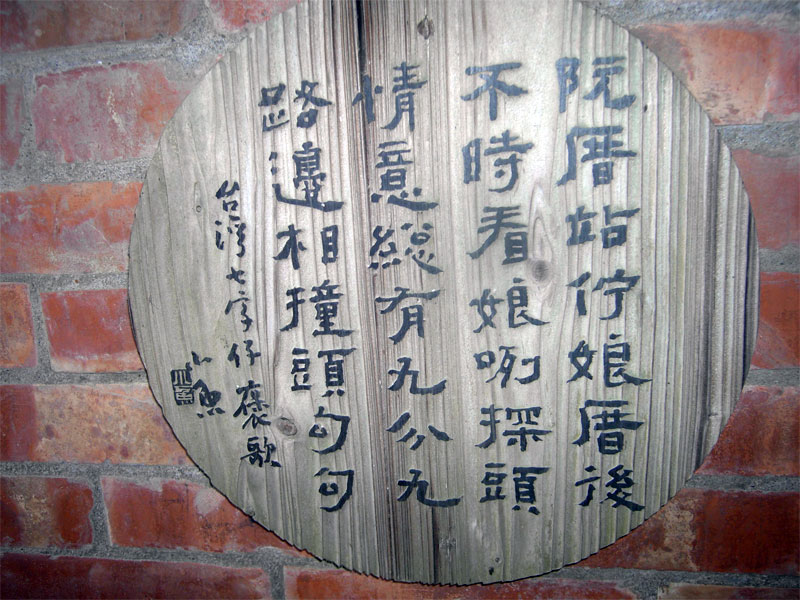 阮厝站佇娘厝後
不時看娘咧探頭
情意總有九分九
路邊相撞頭句句
台灣七字仔褒歌
小魚
小魚